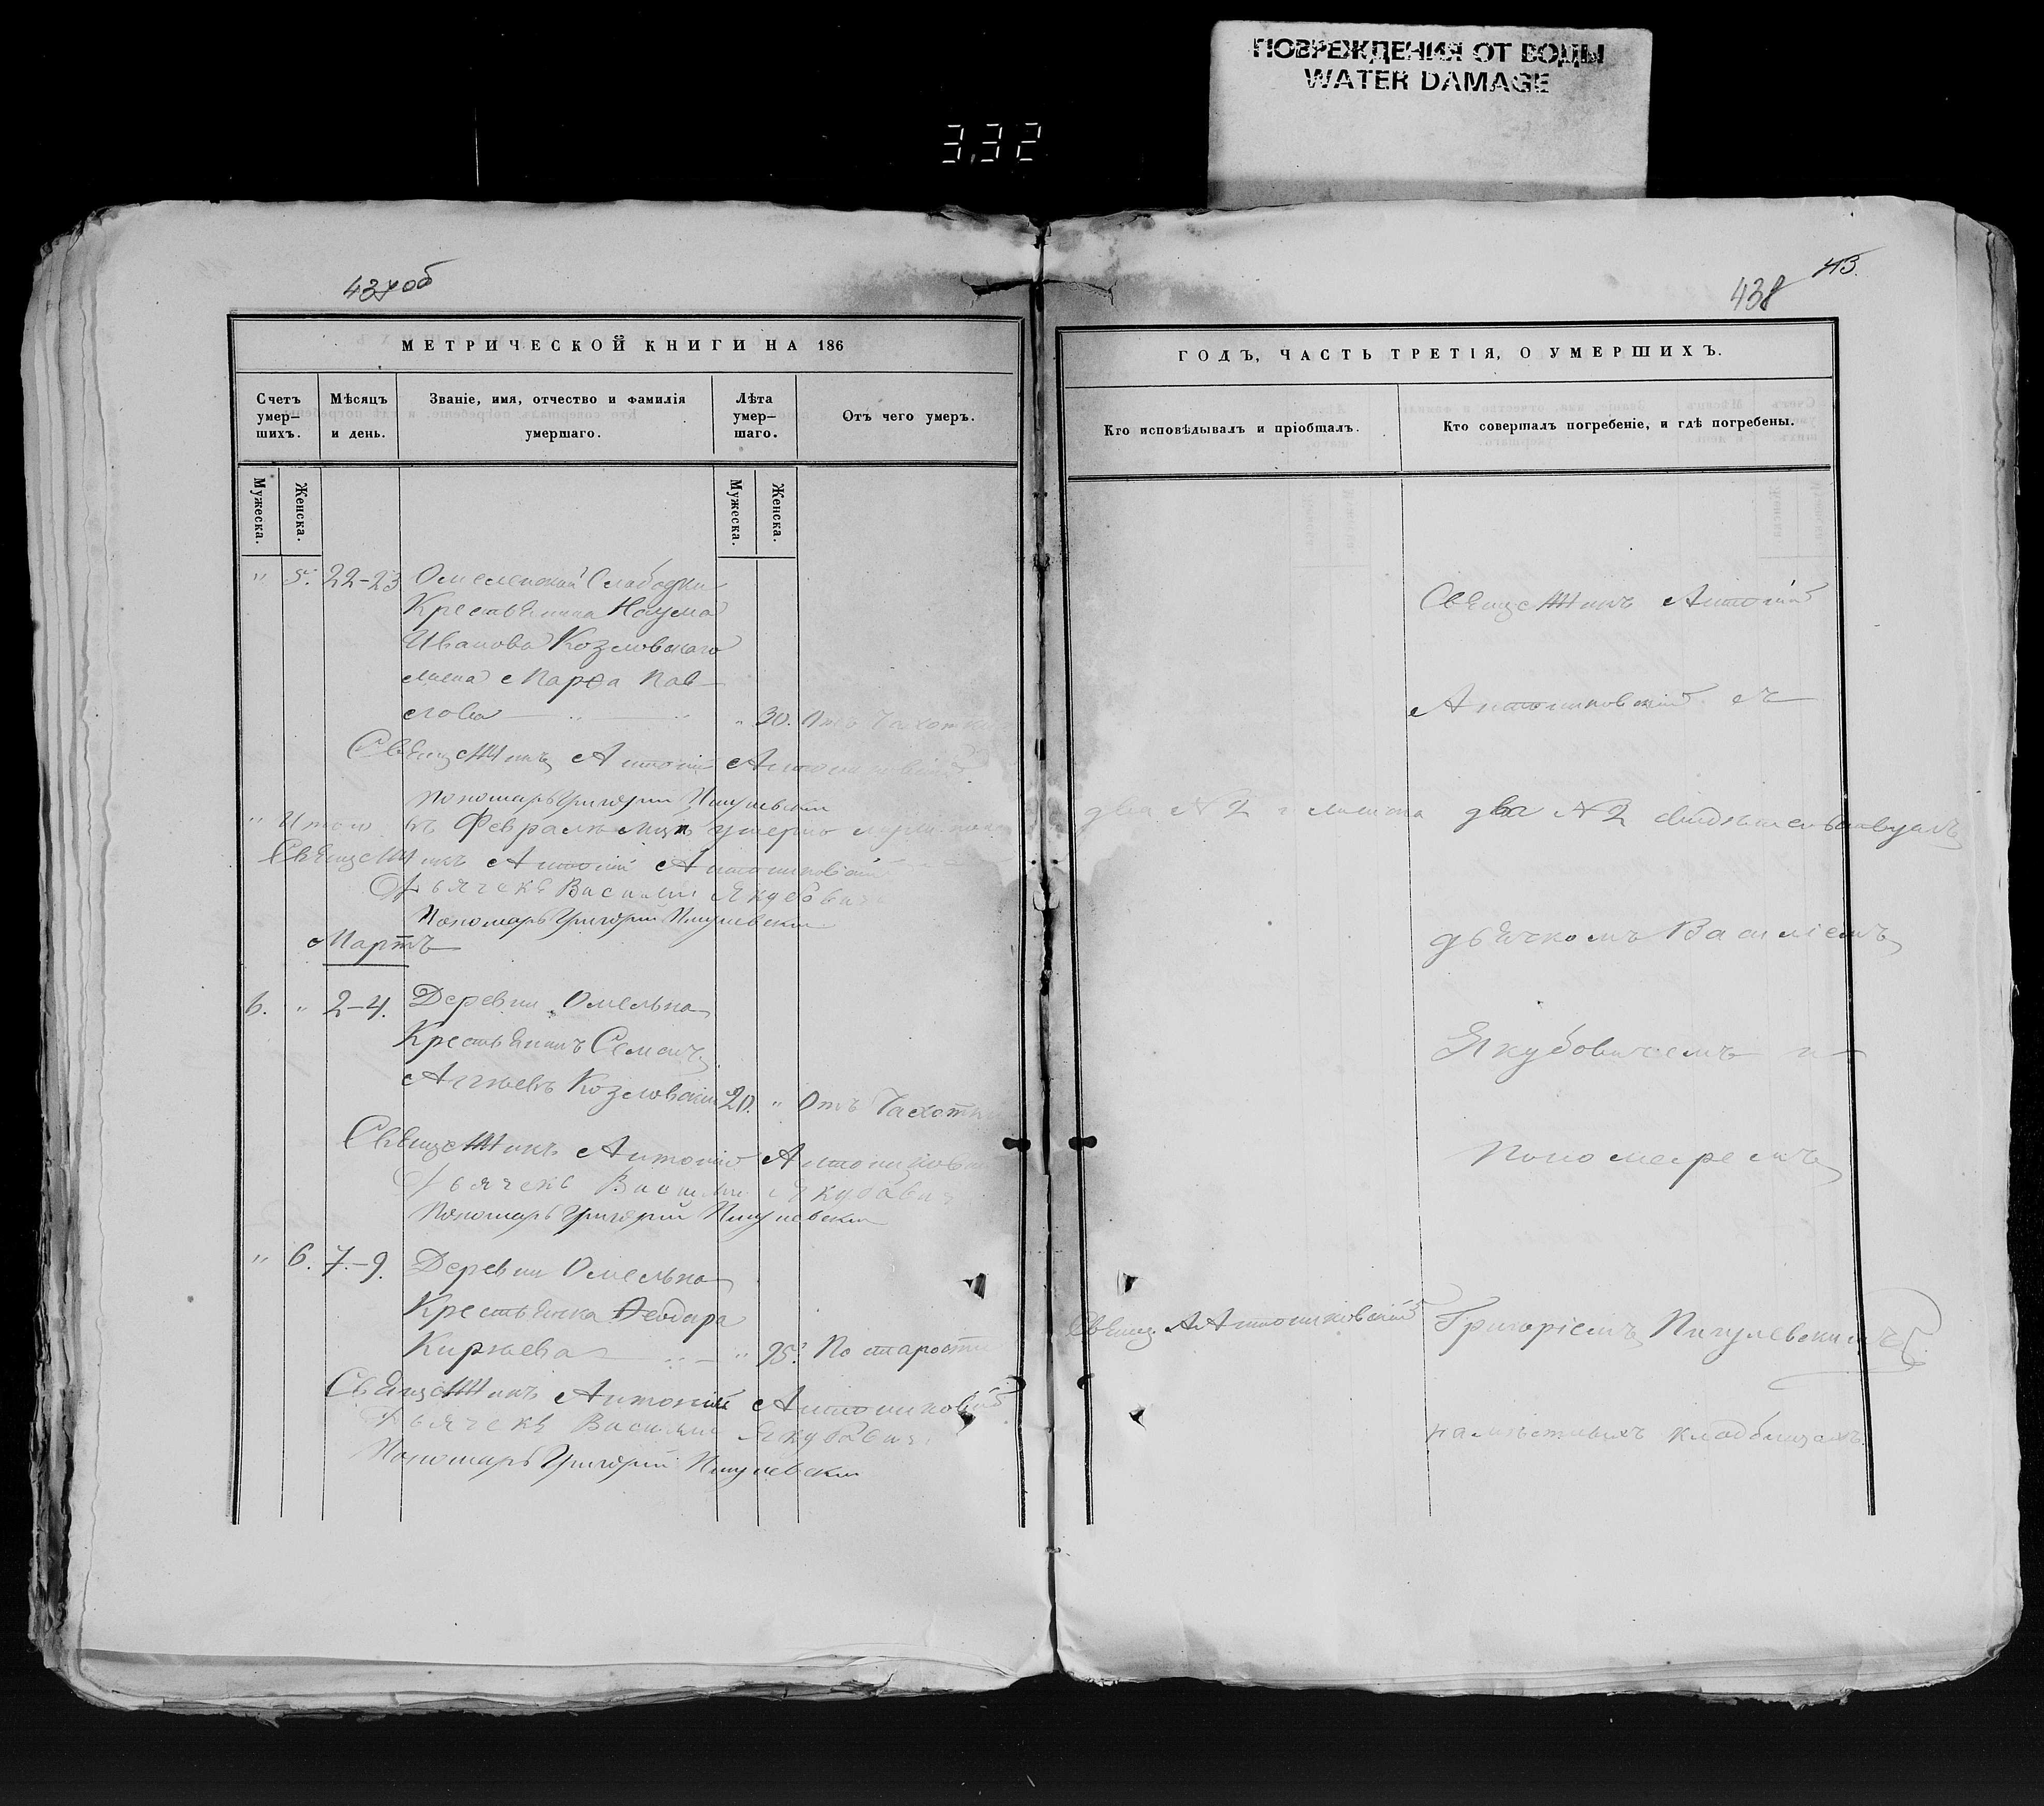 ПОВРЕЖДЕНИЯ ОТ ВОДЫ
WATER DAMAGE
3,32
437об
МЕТРИЧЕСКОЙ КНИГИ НА 186
Счетъ умер-шихъ.
Мѣсяцъ и день.
Званіе, имя, отчество и фамилія умершаго.
Лѣта умер-шаго.
Отъ чего умеръ.
Мужеска.
Женска.
Мужеска.
Женска.
" 5. 22-23 Омеленской Слабодки
Крестьянина Наума
Иванова Козловскаго
жена Марѳа Пав-
лова " 30. Отъ Чахотки
Священникъ Антоній Антониковскій
Пономарь Григорій Пигулевскій
" Итого въ Февралѣ
Священникъ Антоній Антониковскій
Дьячекъ Василій Якубовичъ
Пономарь Григорій Пигулевскій
Мартъ
6. " 2-4. Деревни Омельна
Крестьянинъ Семенъ
Козловскій 20. " Отъ Чахотки
Священникъ Антоній Антониковскій
Дьячекъ Василій Якубовичъ
Пономарь Григорій Пигулевскій
" 6. 7-9. Деревни Омельна
Крестьянка Ѳеодора
Кирѣева " 95. По старости
Священникъ Антоній Антониковскій
Дьячекъ Василій Якубовичъ
Пономарь Григорій Пигулевскій
43.
438
ГОДЪ, ЧАСТЬ ТРЕТІЯ, О УМЕРШИХЪ.
Кто исповѣдывалъ и пріобщалъ.
Кто совершалъ погребеніе, и гдѣ погребены.
Священникъ Антоній
Антониковскій съ
два № 2 и два № 2
дьячкомъ Василіемъ
Якубовичемъ и
пономаремъ
Свящ. А Антониковскій Григоріемъ Пигулевскимъ
кладбищахъ.